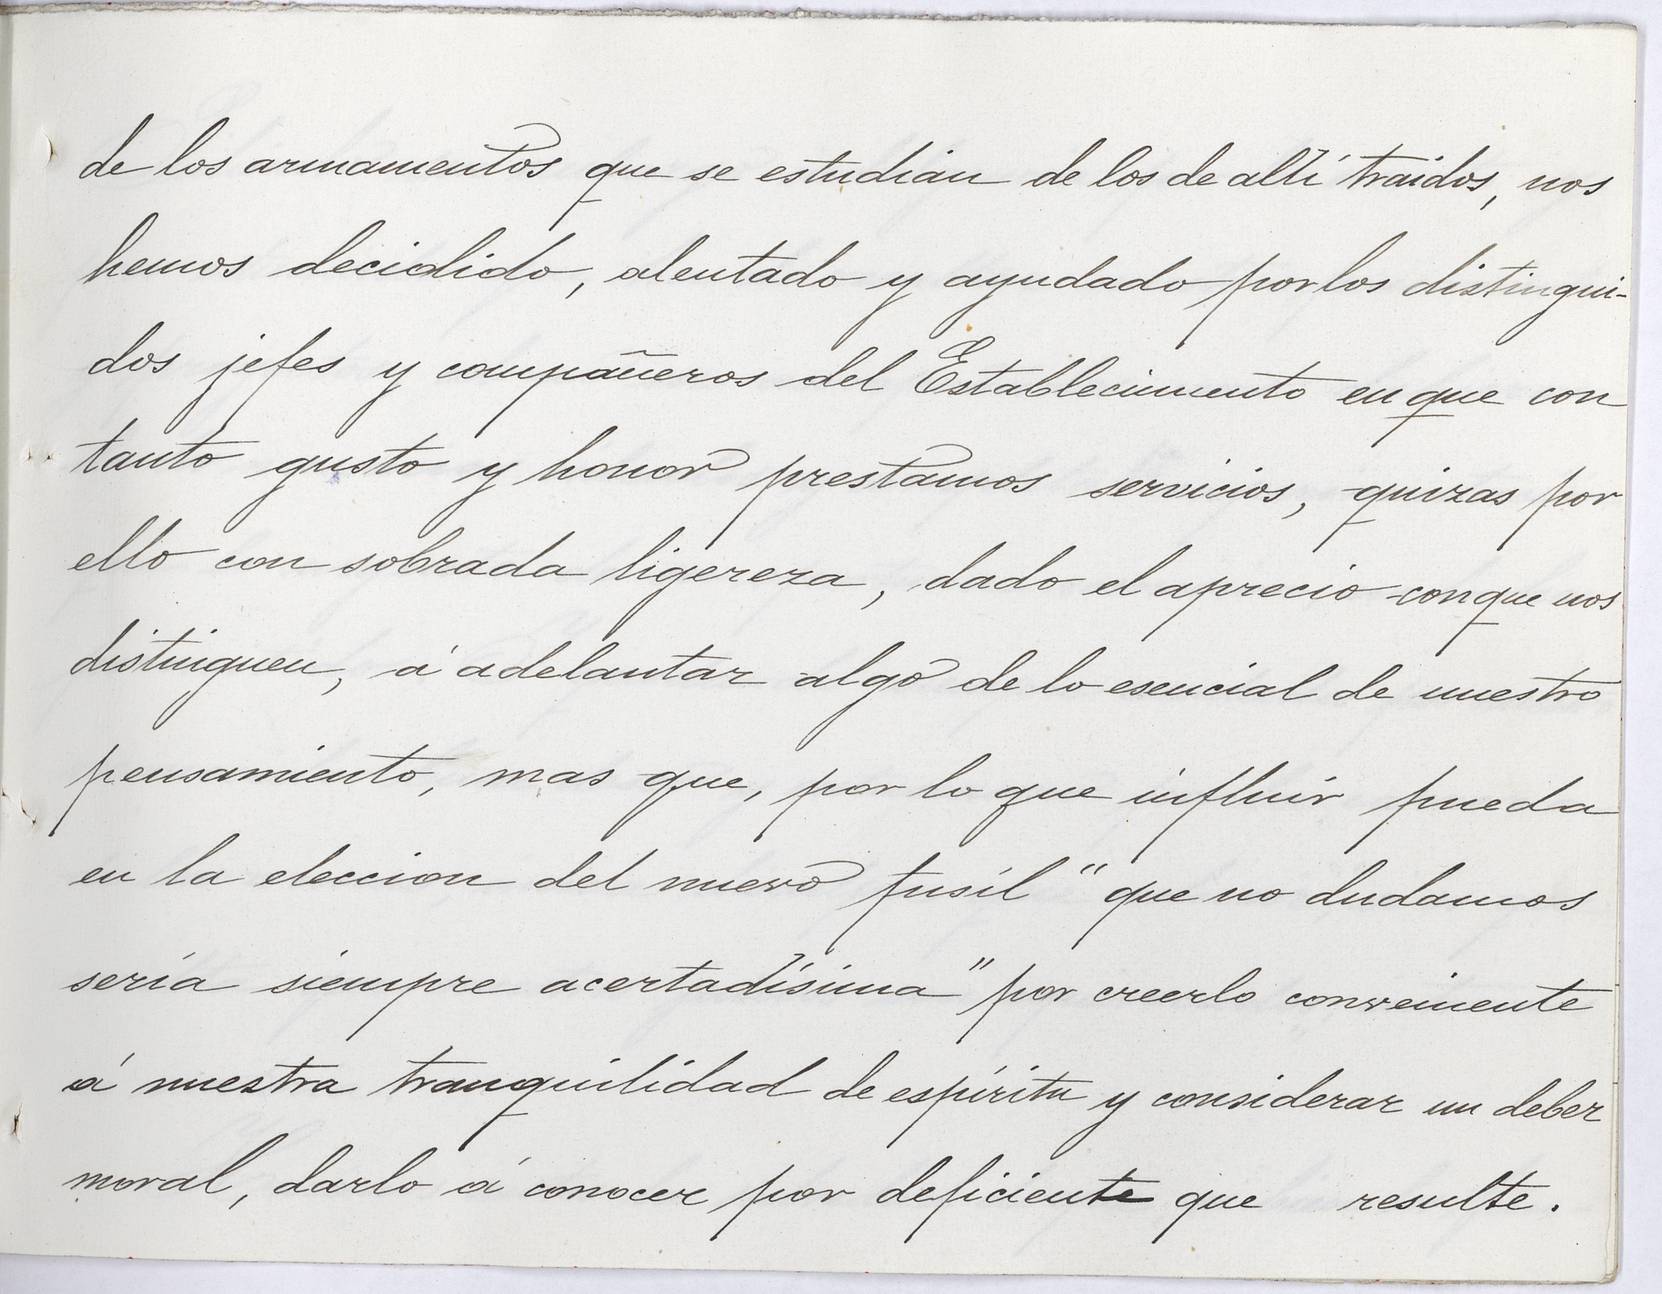 de los armamentos que se estudian de los de allí traidos, nos
hemos decidido, alentado y ayudado por los distingui-
dos jefes y compañeros del Establecimiento en que con
tanto gusto y honor prestamos servicios, quizas por
ello con sobrada ligereza, dado el aprecio con que nos
distinguen, á adelantar algo de lo esencial de nuestro
pensamiento, mas que, por lo que influir pueda
en la eleccion del nuevo fusil "que no dudamos
sería siempre acertadísima" por creerlo conveniente
á nuestra tranquilidad de espíritu y considerar un deber
moral, darlo á conocer por deficiente que resulte.